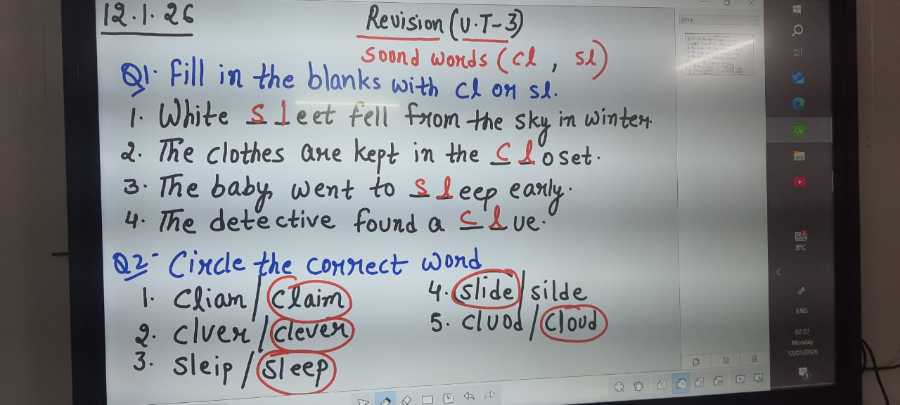 12.1.26
Revision (U.T-3)
Soond words (cl, sl)
Q1. Fill in the blanks with cl or sl.
1. White sleet fell from the sky in winter.
2. The clothes are kept in the closet.
3. The baby went to sleep early.
4. The detective found a clue.
Q2- Circle the correct word
1. Clian/Claim
2. clver/clever
3. Sleip/Sleep
4. slide/silde
5. cluod/Cloud
ENG
Monday